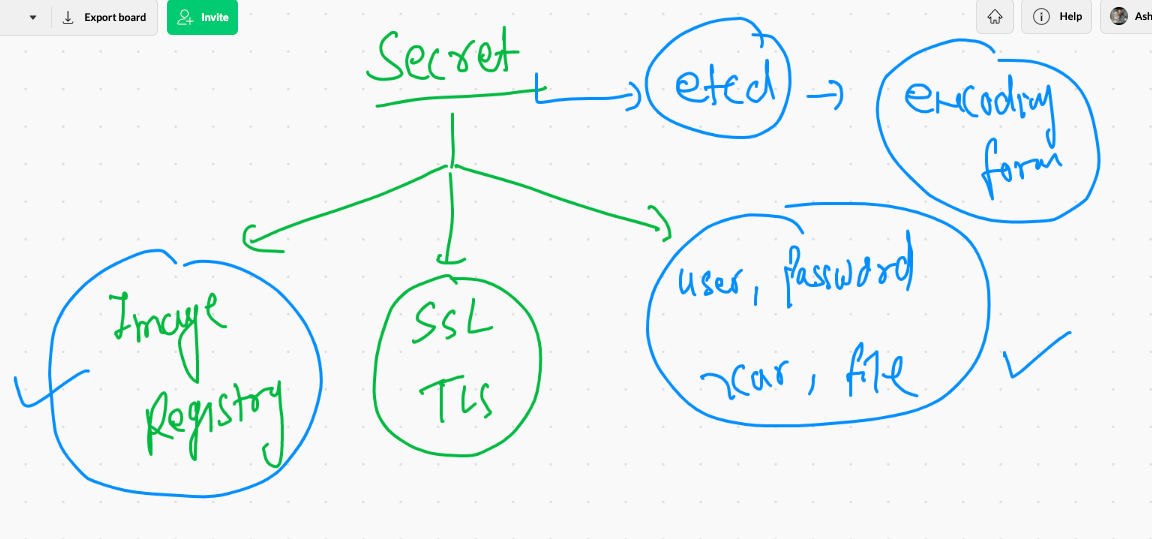 Export board
Invite
Help
Ash
Secret
etcd
encoding
form
Image
Registry
SSL
TLS
user, password
, file